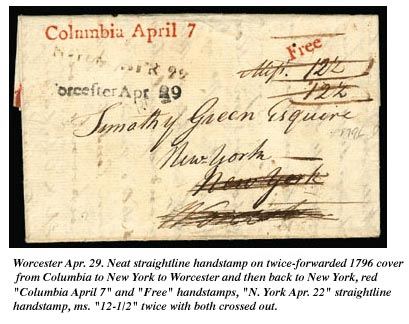 Columbia April 7
Free
12½
WorcesterApr 29
12½
Timothy Green Esquire
1796
New-York
New York
Worcester
Worcester Apr. 29. Neat straightline handstamp on twice-forwarded 1796 cover
from Columbia to New York to Worcester and then back to New York, red
"Columbia April 7" and "Free" handstamps, "N. York Apr. 22" straightline
handstamp, ms. "12-1/2" twice with both crossed out.